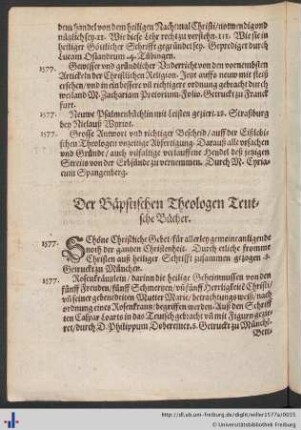 dem handel von dem heiligen Nachtmal Christi/ notwendig vnd
nützlich sey. II. Wie diese Lehr recht zu verstehn. III. Wie sie in
heiliger Göttlicher Schrifft gegründet sey. Geprediget durch
Lucam Osiandrum. 4. Tübingen.
1577. Gewisser vnd gründtlicher Vnderricht von den vornembsten
Artickeln der Christlichen Religion. Jetzt auffs neuw mit fleiß
ersehen/ vnd in ein bessere vñ richtigere ordnung gebracht durch
weiland M. Zachariam Pretorium. Folio. Getruckt zu Franck
furt.
1577. Neuwe Psalmenbüchlin mit Leisten geziert. 16. Straßburg
bey Niclauß Wyriot.
1577. Grosse Antwort vnd richtiger Bescheid/ auff der Eißlebi-
schen Theologen vnzeitige Abfertigung. Darauß alle vrsachen
vnd Gründe/ auch vielfaltige verlauffene Hendel deß jetzigen
Streits von der Erbsünde zu vernemmen. Durch M. Cyria-
cum Spangenberg.
Der Bäpstischen Theologen Teut-
sche Bücher.
1577. SChöne Christliche Gebet für allerley gemeine anligende
noth der gantzen Christenheit. Durch etliche fromme
Christen auß heiliger Schrifft zusammen gezogen. 4.
Getruckt zu München.
1577. Rosenkräntzlein/ darinn die heilige Geheimnussen von den
fünff Freuden/ fünff Schmertzen/ vñ fünff Herrligkeit Christi/
vñ seiner gebenedeiten Mutter Marie/ betrachtungs weiß/ nach
ordnung eines Rosenkrantz/ begriffen werden. Auß den Schrifft
ten Caspar Loarts in das Teutsch gebracht vñ mit Figurn gezie-
ret/ durch D. Philippum Dobereiner. 8. Getruckt zu Münchē.
Bett-
http://dl.ub.uni-freiburg.de/diglit/weller1577a/0035
© Universitätsbibliothek Freiburg